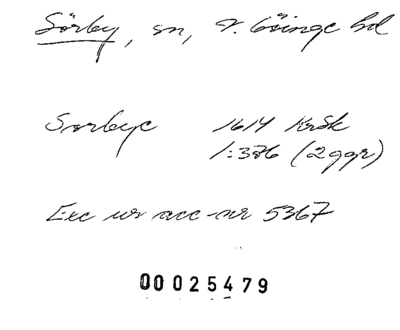 Sörby, sn, V. Göinge hd
Sorbye 1614 KrSk
1:376 (2ggr)
Exc ur acc-nr 5367
00025479